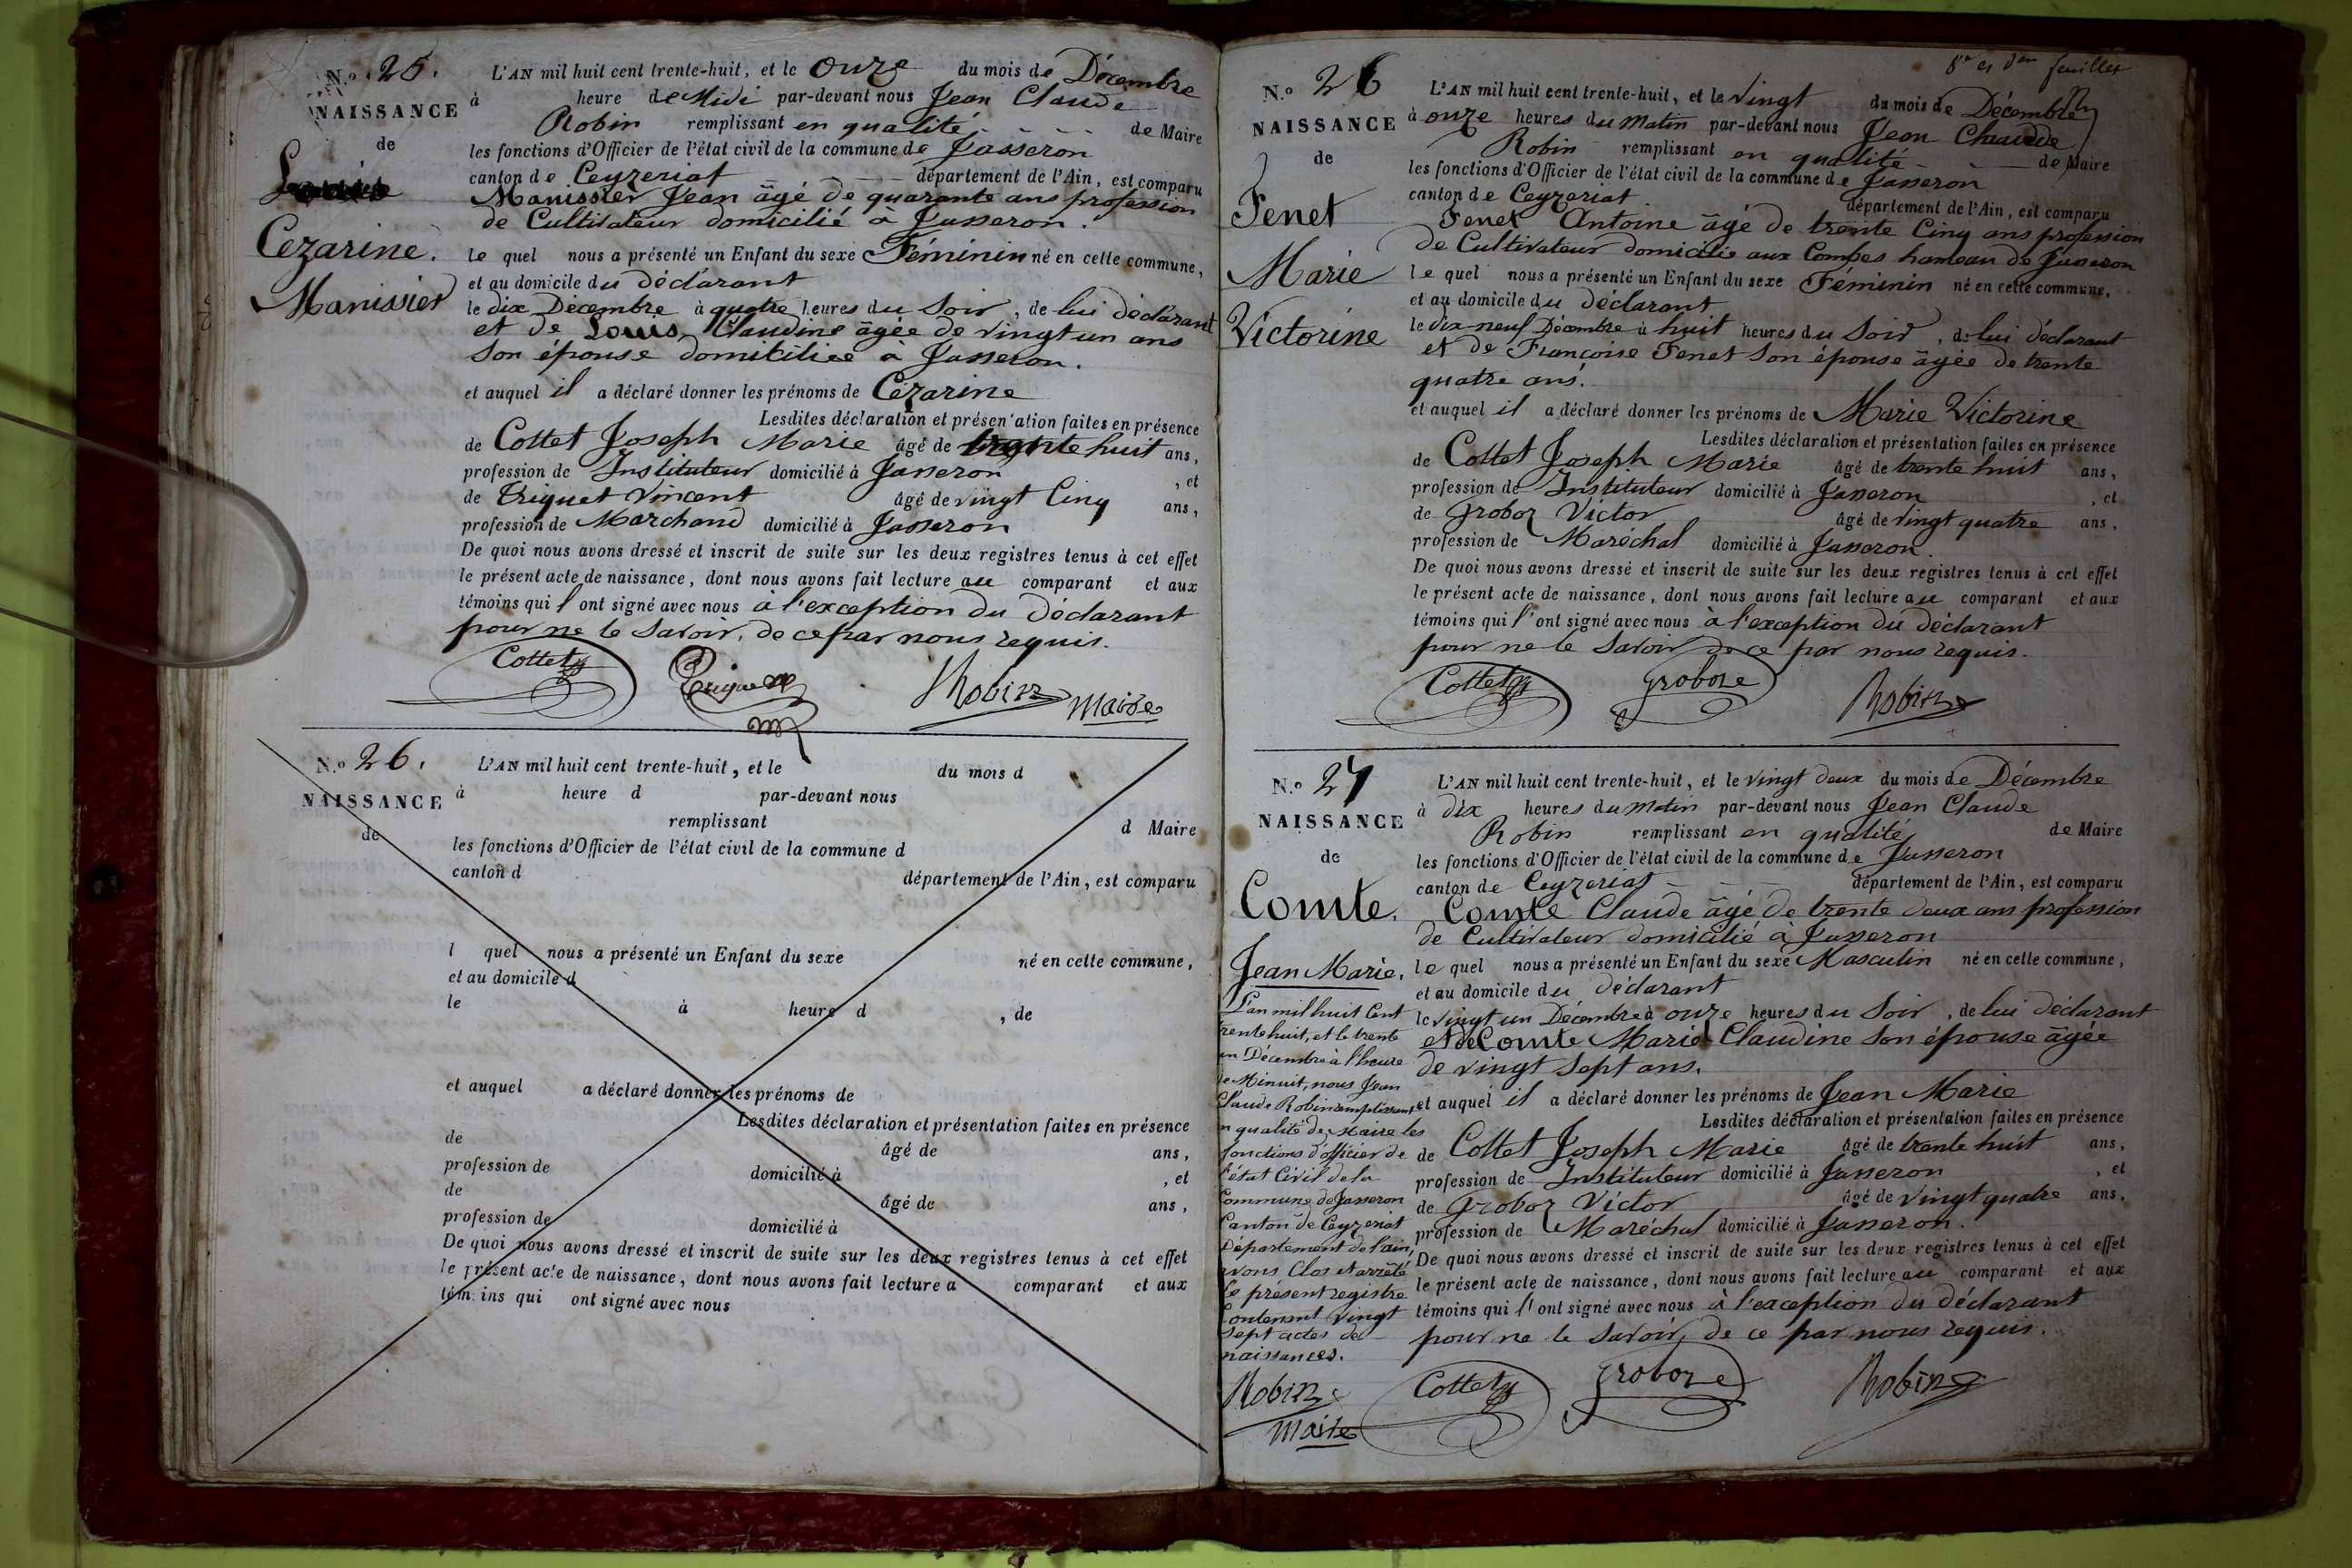 N.o 25.
NAISSANCE
de
Cezarine.
Manissier
L'AN mil huit cent trente-huit, et le onze du mois de Décembre
à heure de Midi par-devant nous Jean Claude
Robin remplissant en qualité de Maire
les fonctions d'Officier de l'état civil de la commune de Jasseron
canton de Ceyzeriat département de l'Ain, est comparu
Manissier Jean âgé de quarante ans profession
de Cultivateur domicilié à Jasseron.
le quel nous a présenté un Enfant du sexe Féminin né en cette commune,
et au domicile du déclarant
le dix Décembre à quatre heures du Soir, de lui déclarant
et de Louis Claudine âgée de vingt un ans
Son épouse domiciliée à Jasseron.
et auquel il a déclaré donner les prénoms de Cézarine
Lesdites déclaration et présentation faites en présence
de Cottet Joseph Marie âgé de trente huit ans,
profession de Instituteur domicilié à Jasseron, et
de Triquet Vincent âgé de vingt Cinq ans,
profession de Marchand domicilié à Jasseron
De quoi nous avons dressé et inscrit de suite sur les deux registres tenus à cet effet
le présent acte de naissance, dont nous avons fait lecture au comparant et aux
témoins qui l'ont signé avec nous à l'exception du déclarant
pour ne le Savoir, de ce par nous requis.
Cottet Triquet Robin Maire
N.o 26.
NAISSANCE
de
L'AN mil huit cent trente-huit, et le du mois d
à heure d par-devant nous
remplissant d Maire
les fonctions d'Officier de l'état civil de la commune d
canton d département de l'Ain, est comparu
l quel nous a présenté un Enfant du sexe né en cette commune,
et au domicile d
le à heure d , de
et auquel a déclaré donner les prénoms de
Lesdites déclaration et présentation faites en présence
de âgé de ans,
profession de domicilié à , et
de âgé de ans,
profession de domicilié à
De quoi nous avons dressé et inscrit de suite sur les deux registres tenus à cet effet
le présent acte de naissance, dont nous avons fait lecture a comparant et aux
témoins qui ont signé avec nous
feuillet
N.o 26
NAISSANCE
de
Fenet
Marie
Victorine
L'AN mil huit cent trente-huit, et le vingt du mois de Décembre
à onze heures du matin par-devant nous Jean Claude
Robin remplissant en qualité de Maire
les fonctions d'Officier de l'état civil de la commune de Jasseron
canton de Ceyzeriat département de l'Ain, est comparu
Fenet Antoine âgé de trente Cinq ans profession
de Cultivateur domicilié aux Combes hameau de Jasseron
le quel nous a présenté un Enfant du sexe Féminin né en cette commune,
et au domicile du déclarant
le dix-neuf Décembre à huit heures du Soir, de lui déclarant
et de Françoise Fenet Son épouse âgée de trente
quatre ans.
et auquel il a déclaré donner les prénoms de Marie Victorine
Lesdites déclaration et présentation faites en présence
de Cottet Joseph Marie âgé de trente huit ans,
profession de Instituteur domicilié à Jasseron, et
de Groboz Victor âgé de vingt quatre ans,
profession de Maréchal domicilié à Jasseron.
De quoi nous avons dressé et inscrit de suite sur les deux registres tenus à cet effet
le présent acte de naissance, dont nous avons fait lecture au comparant et aux
témoins qui l'ont signé avec nous à l'exception du déclarant
pour ne le Savoir de ce par nous requis.
Cottet Groboz Robin
N.o 27
NAISSANCE
de
Comte.
Jean Marie.
L'an mil huit Cent
trente huit, et le trente
un Décembre à l'heure
de Minuit, nous Jean
Claude Robin remplissant
en qualité de Maire les
fonctions d'officier de
l'état Civil de la
Commune de Jasseron
Canton de Ceyzeriat
Département de l'ain,
avons Clos et arrêté
le présent registre
Contenant vingt
Sept actes de
naissances.
Robin
Maire
L'AN mil huit cent trente-huit, et le vingt deux du mois de Décembre
à dix heures du matin par-devant nous Jean Claude
Robin remplissant en qualité de Maire
les fonctions d'Officier de l'état civil de la commune de Jasseron
canton de Ceyzeriat département de l'Ain, est comparu
Comte Claude âgé de trente deux ans profession
de Cultivateur domicilié à Jasseron
le quel nous a présenté un Enfant du sexe Masculin né en cette commune,
et au domicile du déclarant
le vingt un Décembre à onze heures du Soir, de lui déclarant
et de Comte Marie Claudine Son épouse âgée
de vingt Sept ans.
et auquel il a déclaré donner les prénoms de Jean Marie
Lesdites déclaration et présentation faites en présence
de Cottet Joseph Marie âgé de trente huit ans,
profession de Instituteur domicilié à Jasseron, et
de Groboz Victor âgé de vingt quatre ans,
profession de Maréchal domicilié à Jasseron.
De quoi nous avons dressé et inscrit de suite sur les deux registres tenus à cet effet
le présent acte de naissance, dont nous avons fait lecture au comparant et aux
témoins qui l'ont signé avec nous à l'exception du déclarant
pour ne le Savoir, de ce par nous requis.
Cottet Groboz Robin